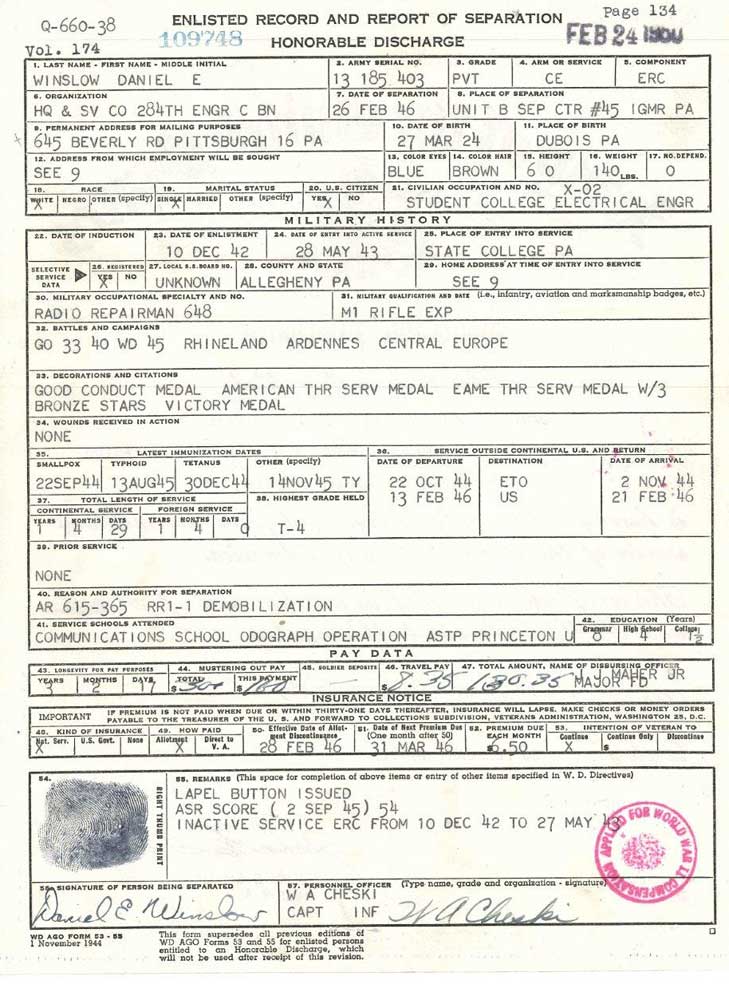 Q-660-38
Vol. 174
109748
ENLISTED RECORD AND REPORT OF SEPARATION
HONORABLE DISCHARGE
Page 134
FEB 24
1. LAST NAME - FIRST NAME - MIDDLE INITIAL 2. ARMY SERIAL NO. 3. GRADE 4. ARM OR SERVICE 5. COMPONENT
WINSLOW DANIEL E 13 185 403 PVT CE ERC
6. ORGANIZATION 7. DATE OF SEPARATION 8. PLACE OF SEPARATION
HQ & SV CO 284TH ENGR C BN 26 FEB 46 UNIT B SEP CTR #45 IGMR PA
9. PERMANENT ADDRESS FOR MAILING PURPOSES 10. DATE OF BIRTH 11. PLACE OF BIRTH
645 BEVERLY RD PITTSBURGH 16 PA 27 MAR 24 DUBOIS PA
12. ADDRESS FROM WHICH EMPLOYMENT WILL BE SOUGHT 13. COLOR EYES 14. COLOR HAIR 15. HEIGHT 16. WEIGHT 17. NO. DEPEND.
SEE 9 BLUE BROWN 6 0 140 LBS. 0
18. RACE 19. MARITAL STATUS 20. U.S. CITIZEN 21. CIVILIAN OCCUPATION AND NO. X-02
WHITE X NEGRO OTHER (specify) SINGLE X MARRIED OTHER (specify) YES X NO STUDENT COLLEGE ELECTRICAL ENGR
MILITARY HISTORY
22. DATE OF INDUCTION 23. DATE OF ENLISTMENT 24. DATE OF ENTRY INTO ACTIVE SERVICE 25. PLACE OF ENTRY INTO SERVICE
10 DEC 42 28 MAY 43 STATE COLLEGE PA
SELECTIVE SERVICE DATA 26. REGISTERED 27. LOCAL S.S. BOARD NO. 28. COUNTY AND STATE 29. HOME ADDRESS AT TIME OF ENTRY INTO SERVICE
YES X NO UNKNOWN ALLEGHENY PA SEE 9
30. MILITARY OCCUPATIONAL SPECIALTY AND NO. 31. MILITARY QUALIFICATION AND DATE (i.e., infantry, aviation and marksmanship badges, etc.)
RADIO REPAIRMAN 648 M1 RIFLE EXP
32. BATTLES AND CAMPAIGNS
GO 33 40 WD 45 RHINELAND ARDENNES CENTRAL EUROPE
33. DECORATIONS AND CITATIONS
GOOD CONDUCT MEDAL AMERICAN THR SERV MEDAL EAME THR SERV MEDAL W/3
BRONZE STARS VICTORY MEDAL
34. WOUNDS RECEIVED IN ACTION
NONE
35. LATEST IMMUNIZATION DATES 36. SERVICE OUTSIDE CONTINENTAL U.S. AND RETURN
SMALLPOX TYPHOID TETANUS OTHER (specify) DATE OF DEPARTURE DESTINATION DATE OF ARRIVAL
22SEP44 13AUG45 30DEC44 14NOV45 TY 22 OCT 44 ETO 2 NOV 44
13 FEB 46 US 21 FEB 46
37. TOTAL LENGTH OF SERVICE 38. HIGHEST GRADE HELD
CONTINENTAL SERVICE FOREIGN SERVICE
YEARS MONTHS DAYS YEARS MONTHS DAYS
1 4 29 1 4 0 T-4
39. PRIOR SERVICE
NONE
40. REASON AND AUTHORITY FOR SEPARATION
AR 615-365 RR1-1 DEMOBILIZATION
41. SERVICE SCHOOLS ATTENDED 42. EDUCATION (Years)
Grammar High School College
COMMUNICATIONS SCHOOL ODOGRAPH OPERATION ASTP PRINCETON U 4 1½
PAY DATA
43. LONGEVITY FOR PAY PURPOSES 44. MUSTERING OUT PAY 45. SOLDIER DEPOSITS 46. TRAVEL PAY 47. TOTAL AMOUNT, NAME OF DISBURSING OFFICER
YEARS MONTHS DAYS TOTAL THIS PAYMENT J MAHER JR
3 2 17 $ 300 $ 100 — $ 8.35 MAJOR FD
INSURANCE NOTICE
IMPORTANT IF PREMIUM IS NOT PAID WHEN DUE OR WITHIN THIRTY-ONE DAYS THEREAFTER, INSURANCE WILL LAPSE. MAKE CHECKS OR MONEY ORDERS
PAYABLE TO THE TREASURER OF THE U. S. AND FORWARD TO COLLECTIONS SUBDIVISION, VETERANS ADMINISTRATION, WASHINGTON 25, D.C.
48. KIND OF INSURANCE 49. HOW PAID 50. Effective Date of Allotment Discontinuance 51. Date of Next Premium Due (One month after 50) 52. PREMIUM DUE EACH MONTH 53. INTENTION OF VETERAN TO
Nat. Serv. U.S. Govt. None Allotment Direct to V. A. Continue Continue Only Discontinue
X X 28 FEB 46 31 MAR 46 $6.50 X
54.
RIGHT THUMB PRINT
55. REMARKS (This space for completion of above items or entry of other items specified in W. D. Directives)
LAPEL BUTTON ISSUED
ASR SCORE ( 2 SEP 45) 54
INACTIVE SERVICE ERC FROM 10 DEC 42 TO 27 MAY 43
APPLIED FOR WORLD WAR II COMPENSATION
56. SIGNATURE OF PERSON BEING SEPARATED 57. PERSONNEL OFFICER (Type name, grade and organization - signature)
W A CHESKI
Daniel E. Winslow CAPT INF W A Cheski
WD AGO FORM 53 - 55
1 November 1944
This form supersedes all previous editions of
WD AGO Forms 53 and 55 for enlisted persons
entitled to an Honorable Discharge, which
will not be used after receipt of this revision.